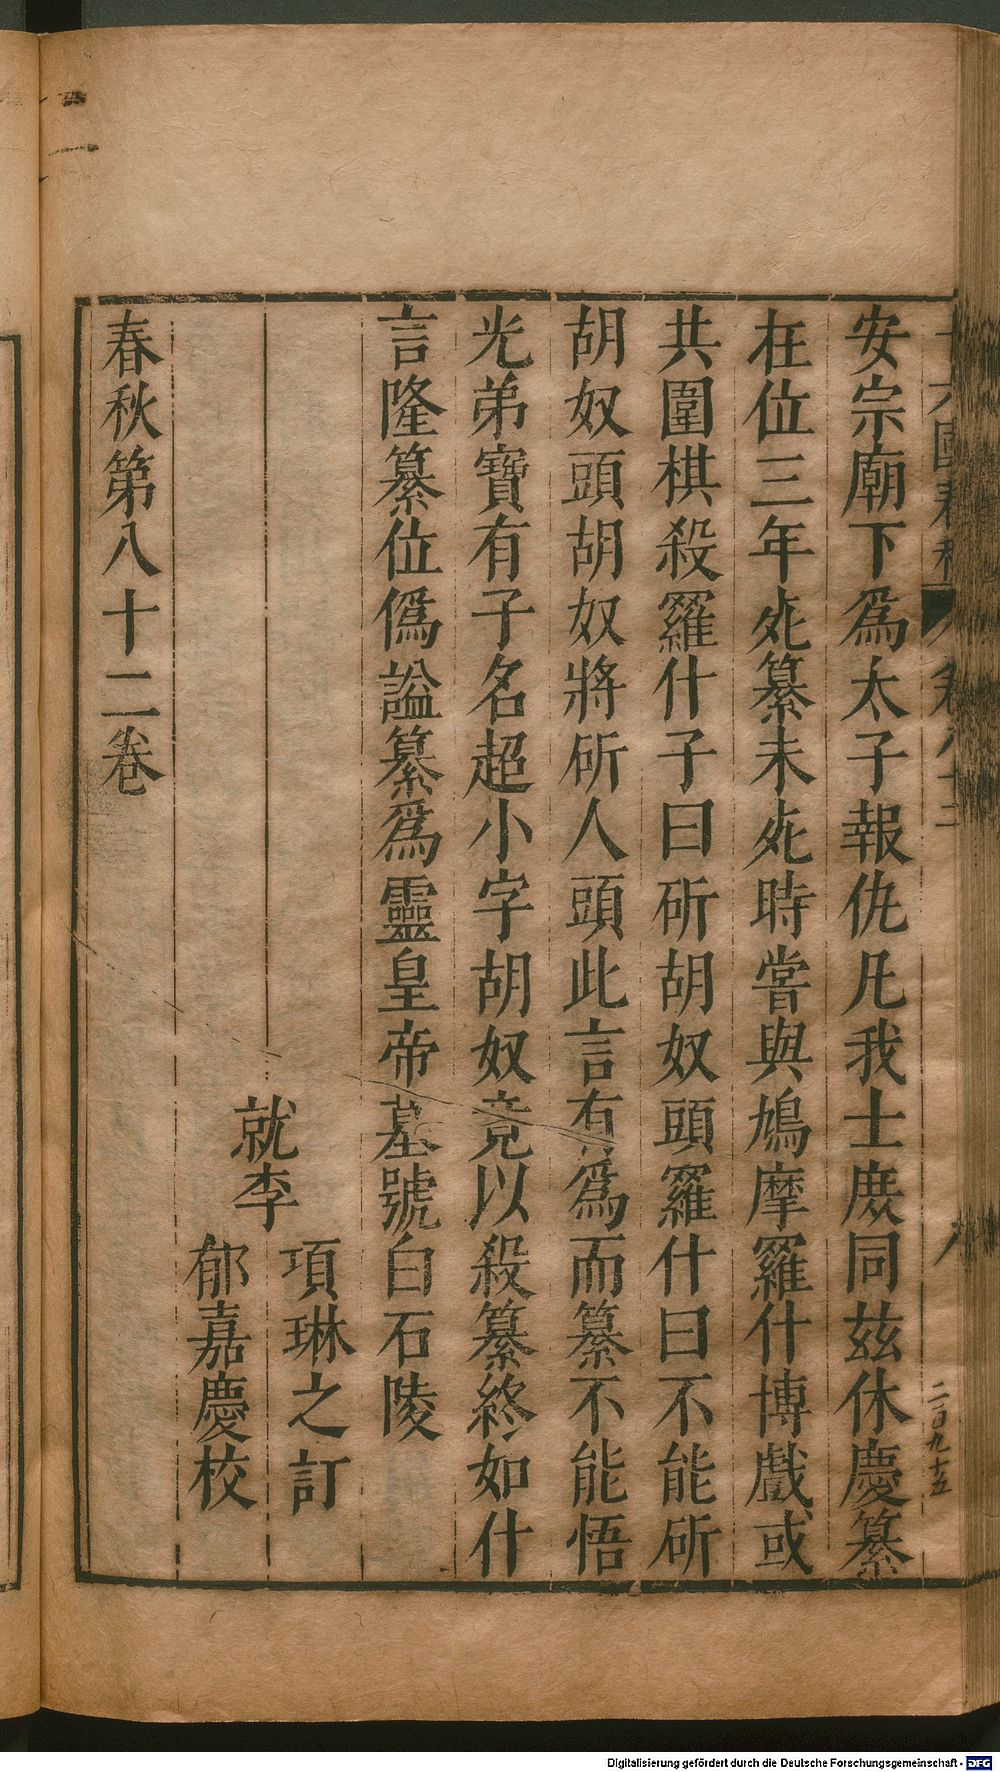 安宗廟下爲太子報仇凡我士庻同兹休慶纂
在位三年𣦸纂未𣦸時嘗與鳩摩羅什博戲或
共圍棋殺羅什子曰斫胡奴頭羅什曰不能斫
胡奴頭胡奴將斫人頭此言有爲而纂不能悟
光弟寶有子名超小字胡奴竟以殺纂終如什
言隆纂位僞謚纂爲靈皇帝墓號白石陵
就李
項琳之訂
郁嘉慶校
春秋第八十二卷
二百九十五
Digitalisierung gefördert durch die Deutsche Forschungsgemeinschaft - DFG